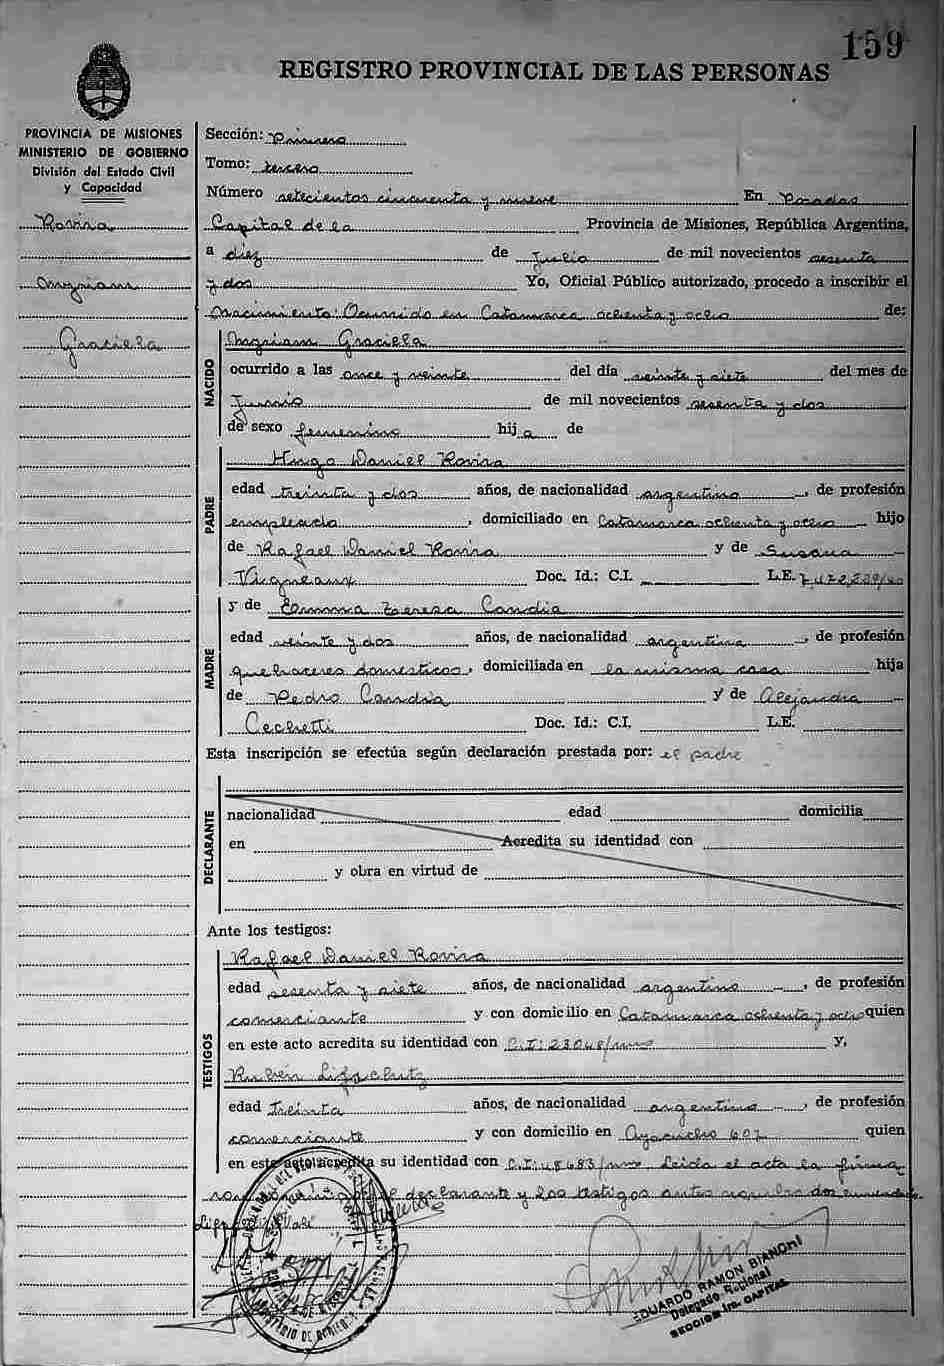 159
REGISTRO PROVINCIAL DE LAS PERSONAS
PROVINCIA DE MISIONES
MINISTERIO DE GOBIERNO
División del Estado Civil
y Capacidad
Rovira
Myriam
Graciela
Sección: Primera
Tomo: tercero
Número setecientos cincuenta y nueve En Posadas
Capital de la Provincia de Misiones, República Argentina,
a diez de Julio de mil novecientos sesenta
y dos Yo, Oficial Público autorizado, procedo a inscribir el
Nacimiento: Ocurrido en Catamarca ochenta y ocho de:
NACIDO
Myriam Graciela
ocurrido a las once y veinte del día veinte y siete del mes de
Junio de mil novecientos sesenta y dos
de sexo femenino hij a de
PADRE
Hugo Daniel Rovira
edad treinta y dos años, de nacionalidad argentino, de profesión
empleado, domiciliado en Catamarca ochenta y ocho hijo
de Rafael Daniel Rovira y de Susana
Vigneaux Doc. Id.: C.I. L.E.
MADRE
y de Emma Teresa Candia
edad veinte y dos años, de nacionalidad argentina, de profesión
quehaceres domesticos, domiciliada en la misma casa hija
de Pedro Candia y de Alejandra
Cechetti Doc. Id.: C.I. L.E.
Esta inscripción se efectúa según declaración prestada por: el padre
DECLARANTE
nacionalidad edad domicilia
en Acredita su identidad con
y obra en virtud de
Ante los testigos:
TESTIGOS
Rafael Daniel Rovira
edad sesenta y siete años, de nacionalidad argentino, de profesión
comerciante y con domicilio en Catamarca ochenta y ocho quien
en este acto acredita su identidad con C.I: 23048/mns y,
Rubén Lifschutz
edad treinta años, de nacionalidad argentino, de profesión
comerciante y con domicilio en Ayacucho 607 quien
en este acto acredita su identidad con C.I: 48683/mns Leida el acta la firma
declarante y los testigos antes
EDUARDO RAMON BIANCHI
Delegado Regional
SECCION 1ra. CAPITAL